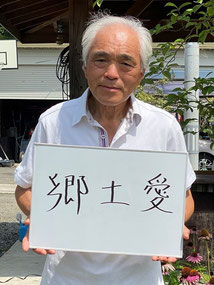 郷土愛